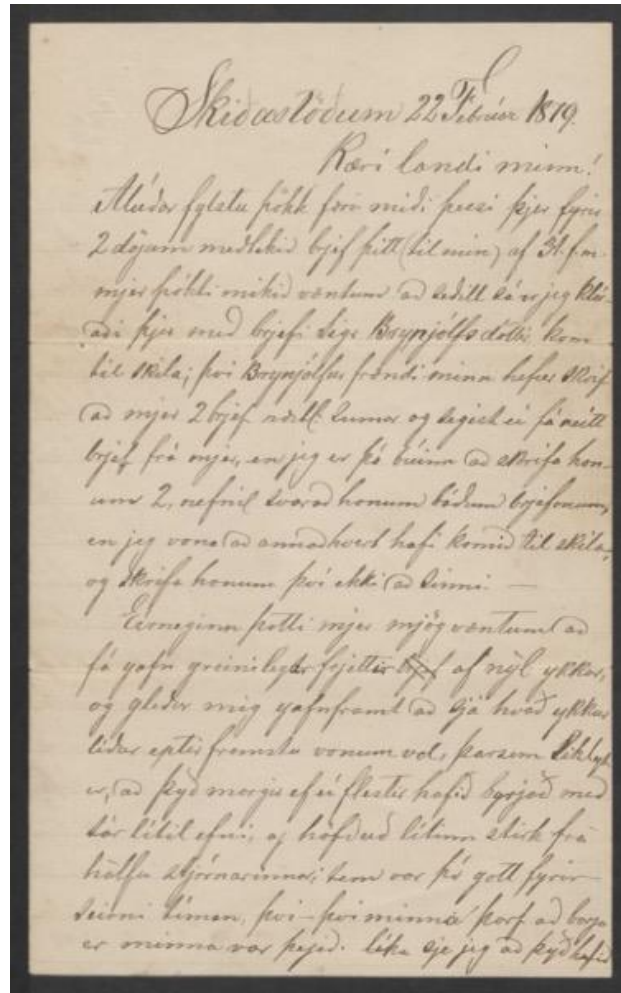 Skíðastöðum 22 Febrúar 1879.
Kæri landi minn!
Alúðar fylstu þökk færi miði þessi þjer fyrir
2 dögum meðtekið brjef þitt (til mín) af 31. f.m.
mjer þókti mikið væntum að seðill sá er jeg
aði þjer með brjefi Sigr Brynjólfsdóttir kom
til skila; því Brynjólfur frændi minn hefur skrif
að mjer 2 brjef sumar og segist ei fá neitt
brjef frá mjer, en jeg er þó búinn að skrifa hon-
um 2, nefnil svarað honum báðum brjefonum,
en jeg vona að annaðhvert hafi komið til skila,
og skrifa honum því ekki að sinni. —
Eirneginn þótti mjer mjög væntum að
fá jafn greinilegar frjettir af nýl ykkar,
og gleður mig jafnframt að sjá hvað ykkur
líður eptir fremstu vonum vel, þarsem líklegt
er, að þyð margir ef ei flestir hafið byrjað með
sár lítil efni, og höfðuð lítinn stirk frá
hálfu stjórnarinnar; sem var þó gott fyrir
seinni tíman, því – því minna þarf að borga
er minna var þegið. líka sje jeg að þyð hafið